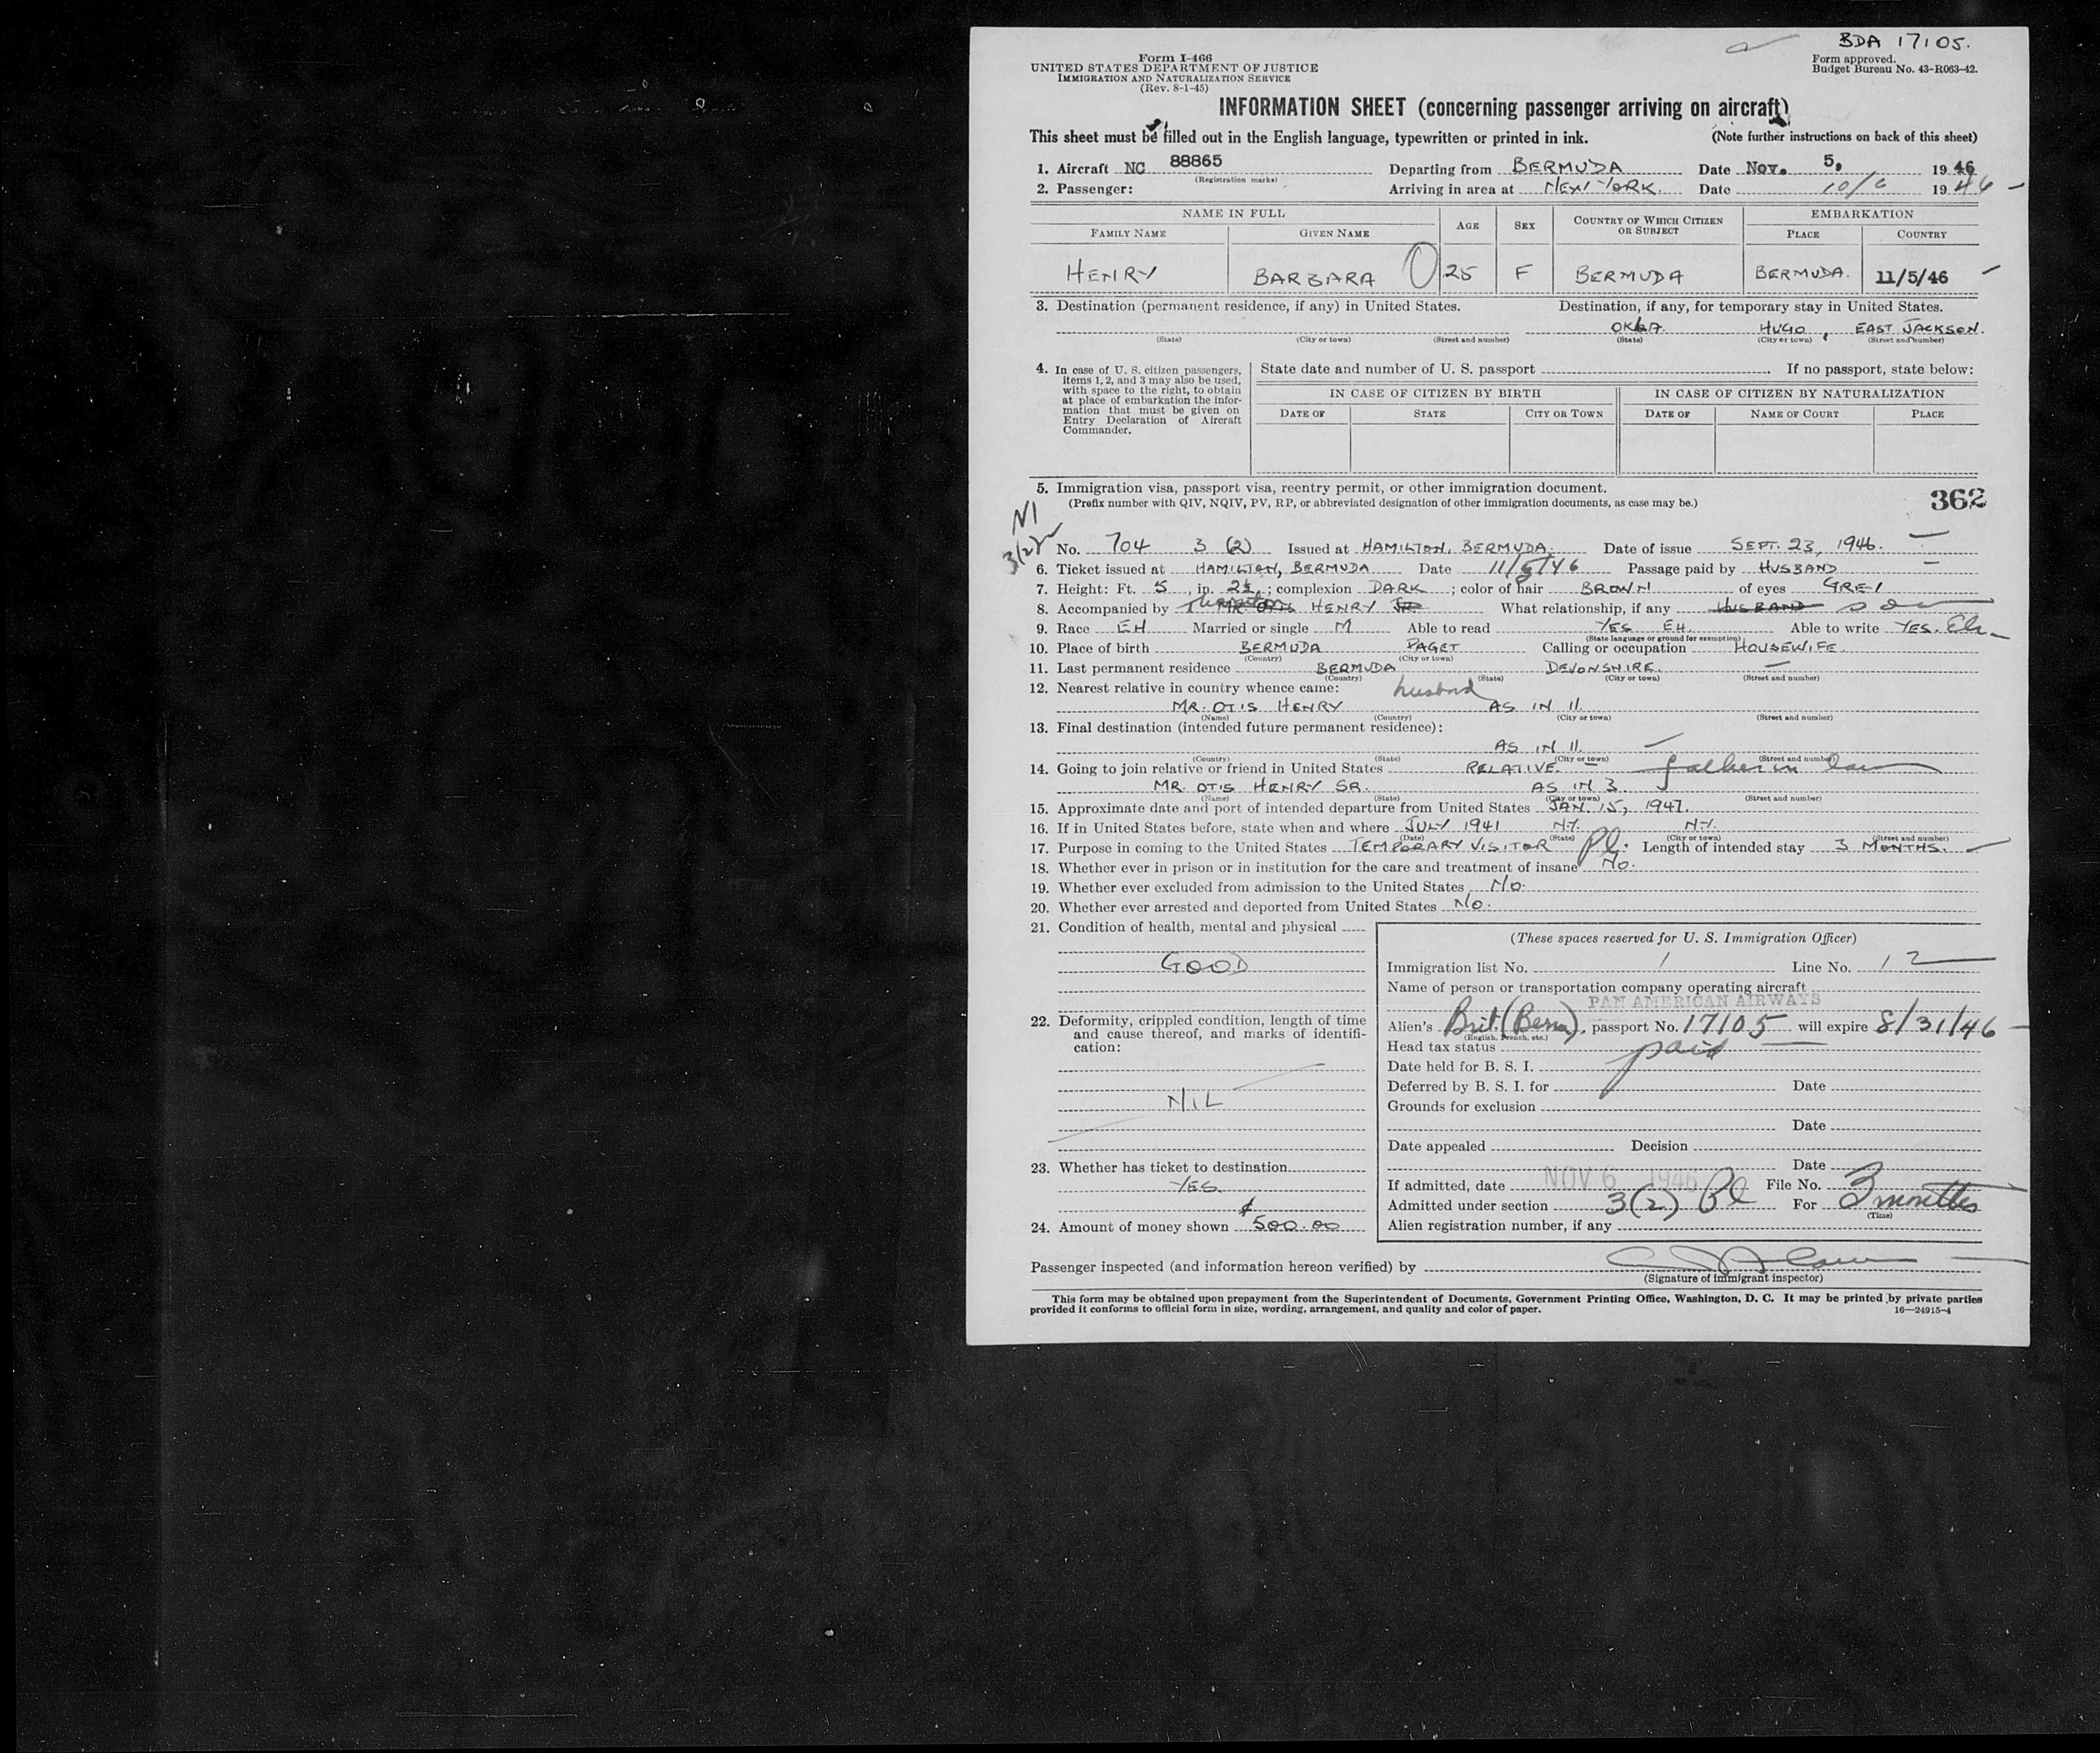 BDA 17105.
Form I-466
UNITED STATES DEPARTMENT OF JUSTICE
IMMIGRATION AND NATURALIZATION SERVICE
(Rev. 8-1-45)
Form approved.
Budget Bureau No. 43-R063-42.
INFORMATION SHEET (concerning passenger arriving on aircraft)
This sheet must be filled out in the English language, typewritten or printed in ink. (Note further instructions on back of this sheet)
1. Aircraft NC 88865 Departing from BERMUDA Date Nov. 5, 1946
(Registration marks)
2. Passenger: Arriving in area at NEW YORK. Date 10/6 1946
NAME IN FULL AGE SEX COUNTRY OF WHICH CITIZEN OR SUBJECT EMBARKATION
FAMILY NAME GIVEN NAME PLACE COUNTRY
HENRY BARBARA 25 F BERMUDA BERMUDA. 11/5/46
3. Destination (permanent residence, if any) in United States. Destination, if any, for temporary stay in United States.
OKLA. HUGO, EAST JACKSON.
(State) (City or town) (Street and number) (State) (City or town) (Street and number)
4. In case of U. S. citizen passengers, items 1, 2, and 3 may also be used, with space to the right, to obtain at place of embarkation the information that must be given on Entry Declaration of Aircraft Commander.
State date and number of U. S. passport If no passport, state below:
IN CASE OF CITIZEN BY BIRTH IN CASE OF CITIZEN BY NATURALIZATION
DATE OF STATE CITY OR TOWN DATE OF NAME OF COURT PLACE
5. Immigration visa, passport visa, reentry permit, or other immigration document.
(Prefix number with QIV, NQIV, PV, RP, or abbreviated designation of other immigration documents, as case may be.)
362
NI
3(2)
No. 704 3 (2) Issued at HAMILTON, BERMUDA. Date of issue SEPT. 23, 1946.
6. Ticket issued at HAMILTON, BERMUDA Date 11/5/46 Passage paid by HUSBAND
7. Height: Ft. 5, in. 2½; complexion DARK; color of hair BROWN of eyes GREY
8. Accompanied by MR. OTIS HENRY JR What relationship, if any HUSBAND son
9. Race EH Married or single M Able to read YES EH. Able to write YES. Eh
(State language or ground for exemption)
10. Place of birth BERMUDA PAGET Calling or occupation HOUSEWIFE.
(Country) (City or town)
11. Last permanent residence BERMUDA DEVONSHIRE.
(Country) (State) (City or town) (Street and number)
12. Nearest relative in country whence came: husband
MR. OTIS HENRY AS IN 11.
(Name) (Country) (City or town) (Street and number)
13. Final destination (intended future permanent residence):
AS IN 11.
(Country) (State) (City or town) (Street and number)
14. Going to join relative or friend in United States RELATIVE. father in law
MR. OTIS HENRY SR. AS IN 3.
(Name) (State) (City or town) (Street and number)
15. Approximate date and port of intended departure from United States JAN. 15, 1947.
16. If in United States before, state when and where JULY 1941 N.Y. N.Y.
(Date) (State) (City or town) (Street and number)
17. Purpose in coming to the United States TEMPORARY VISITOR Pl. Length of intended stay 3 MONTHS.
18. Whether ever in prison or in institution for the care and treatment of insane No.
19. Whether ever excluded from admission to the United States No.
20. Whether ever arrested and deported from United States No.
21. Condition of health, mental and physical
GOOD
22. Deformity, crippled condition, length of time and cause thereof, and marks of identification:
NIL
23. Whether has ticket to destination
YES.
24. Amount of money shown $500.00
(These spaces reserved for U. S. Immigration Officer)
Immigration list No. 1 Line No. 12
Name of person or transportation company operating aircraft
PAN AMERICAN AIRWAYS
Alien's Brit. (Berm), passport No. 17105 will expire 8/31/46
(English, French, etc.)
Head tax status paid
Date held for B. S. I.
Deferred by B. S. I. for Date
Grounds for exclusion
Date
Date appealed Decision
Date
If admitted, date NOV 6 1946 File No.
Admitted under section 3(2) Pl For 3 months
(Time)
Alien registration number, if any
Passenger inspected (and information hereon verified) by
(Signature of immigrant inspector)
This form may be obtained upon prepayment from the Superintendent of Documents, Government Printing Office, Washington, D. C. It may be printed by private parties
provided it conforms to official form in size, wording, arrangement, and quality and color of paper. 16—24915-4